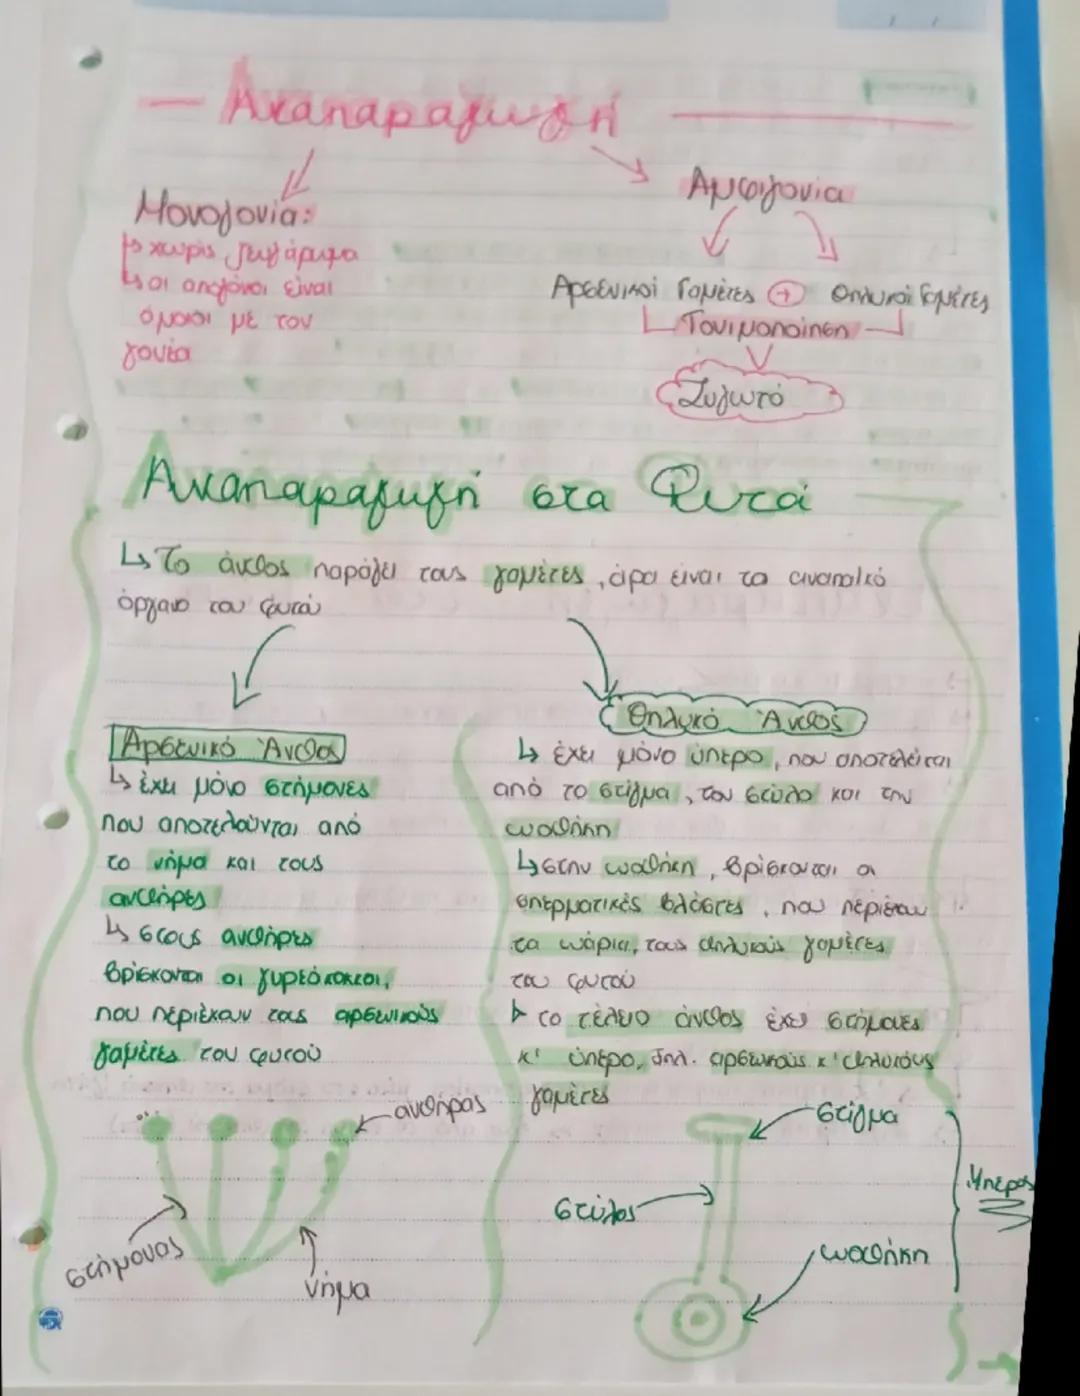 Αναπαραγωγή
Μονογονία:
↳ χωρίς ζευγάρωμα
↳ οι απογόνοι είναι
όμοιοι με τον
γονέα
Αμφιγονία
Αρσενικοί Γαμέτες + Θηλυκοί Γαμέτες
Γονιμοποίηση
Ζυγωτό
Αναπαραγωγή στα Φυτά
↳ Το άνθος παράγει τους γαμέτες, άρα είναι το αναπ/κό
όργανο του φυτού
Αρσενικό Άνθος
↳ έχει μόνο στήμονες
που αποτελούνται από
το νήμα και τους
ανθήρες
↳ στους ανθήρες
βρίσκονται οι γυρεόκοκκοι,
που περιέχουν τους αρσενικούς
γαμέτες του φυτού
Θηλυκό Άνθος
↳ έχει μόνο ύπερο, που αποτελείται
από το στίγμα, τον στύλο και την
ωοθήκη
↳ στην ωοθήκη, βρίσκονται οι
σπερματικές βλάστες, που περιέχουν
τα ωάρια, τους θηλυκούς γαμέτες
του φυτού
το τέλειο άνθος έχει στήμονες
κ' ύπερο, δηλ. αρσενικούς κ' θηλυκούς
γαμέτες
ανθήρας
στήμονας
νήμα
στίγμα
στύλος
ωοθήκη
Ύπερος